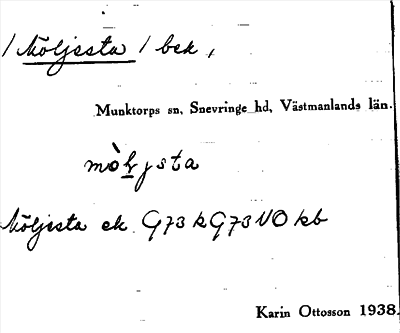 / Möljesta / bek,
Munktorps sn, Snevringe hd, Västmanlands län.
mòljsta
Möljesta ek G73 k G73 NO kb
Karin Ottosson 1938.